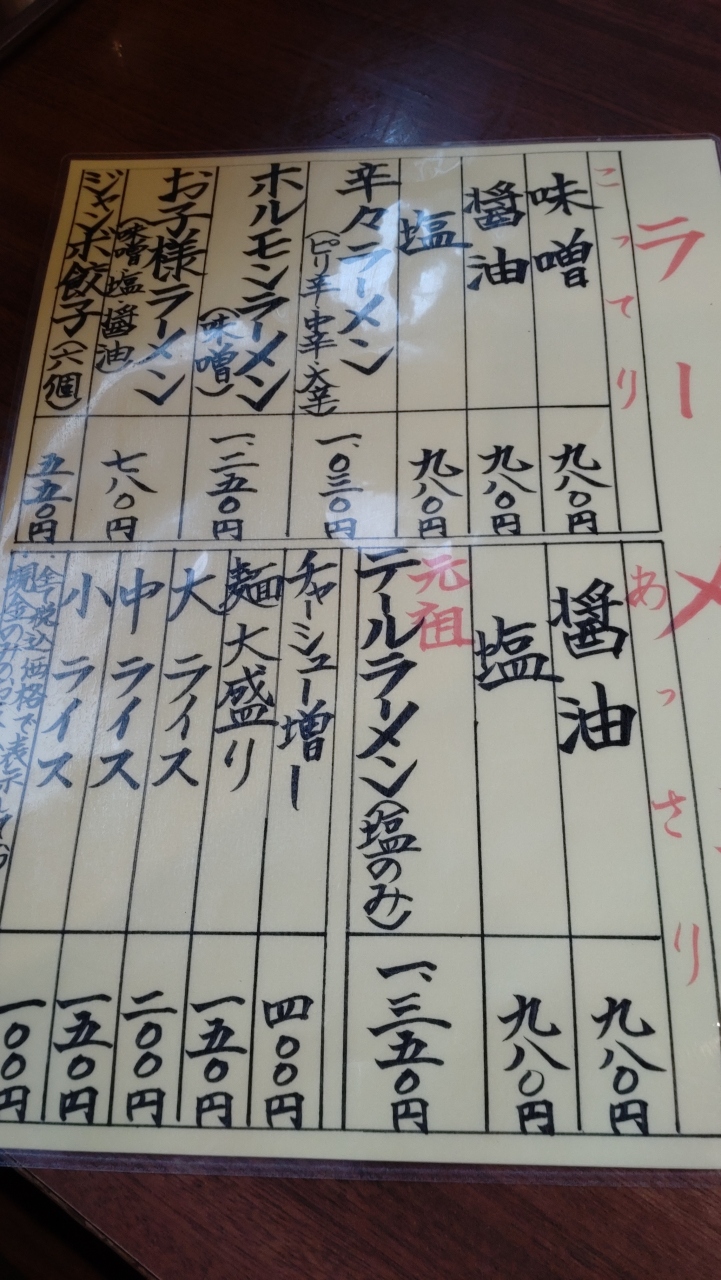 ラーメ
こってり
味噌 九八〇円
醤油 九八〇円
塩 九八〇円
辛々ラーメン
(ピリ辛・中辛・大辛)
一、〇三〇円
ホルモンラーメン
(味噌)
一、二五〇円
お子様ラーメン
(味噌・塩・醤油)
七八〇円
ジャンボ餃子(六個)
五五〇円
あっさり
醤油 九八〇円
塩 九八〇円
元祖
テールラーメン(塩のみ)
一、三五〇円
チャーシュー増し 四〇〇円
麺大盛り 一五〇円
大ライス 二〇〇円
中ライス 一五〇円
小ライス 一〇〇円
全て税込価格で表示して
現金のみの